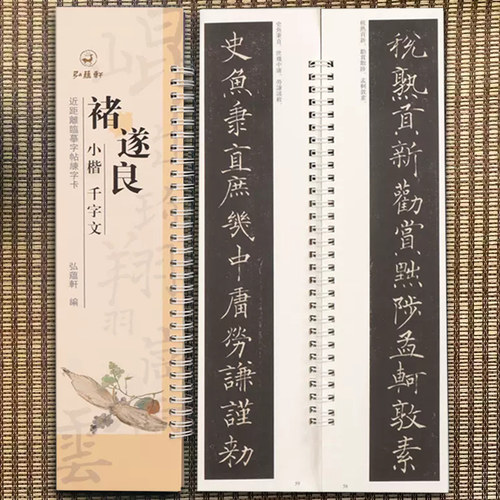 弘蕴軒
近距離臨摹字帖練字卡
褚遂良
小楷 千字文
弘蕴軒 編
稅熟貢新勸賞黜陟孟軻敦素
史魚秉直庶幾中庸勞謙謹勑